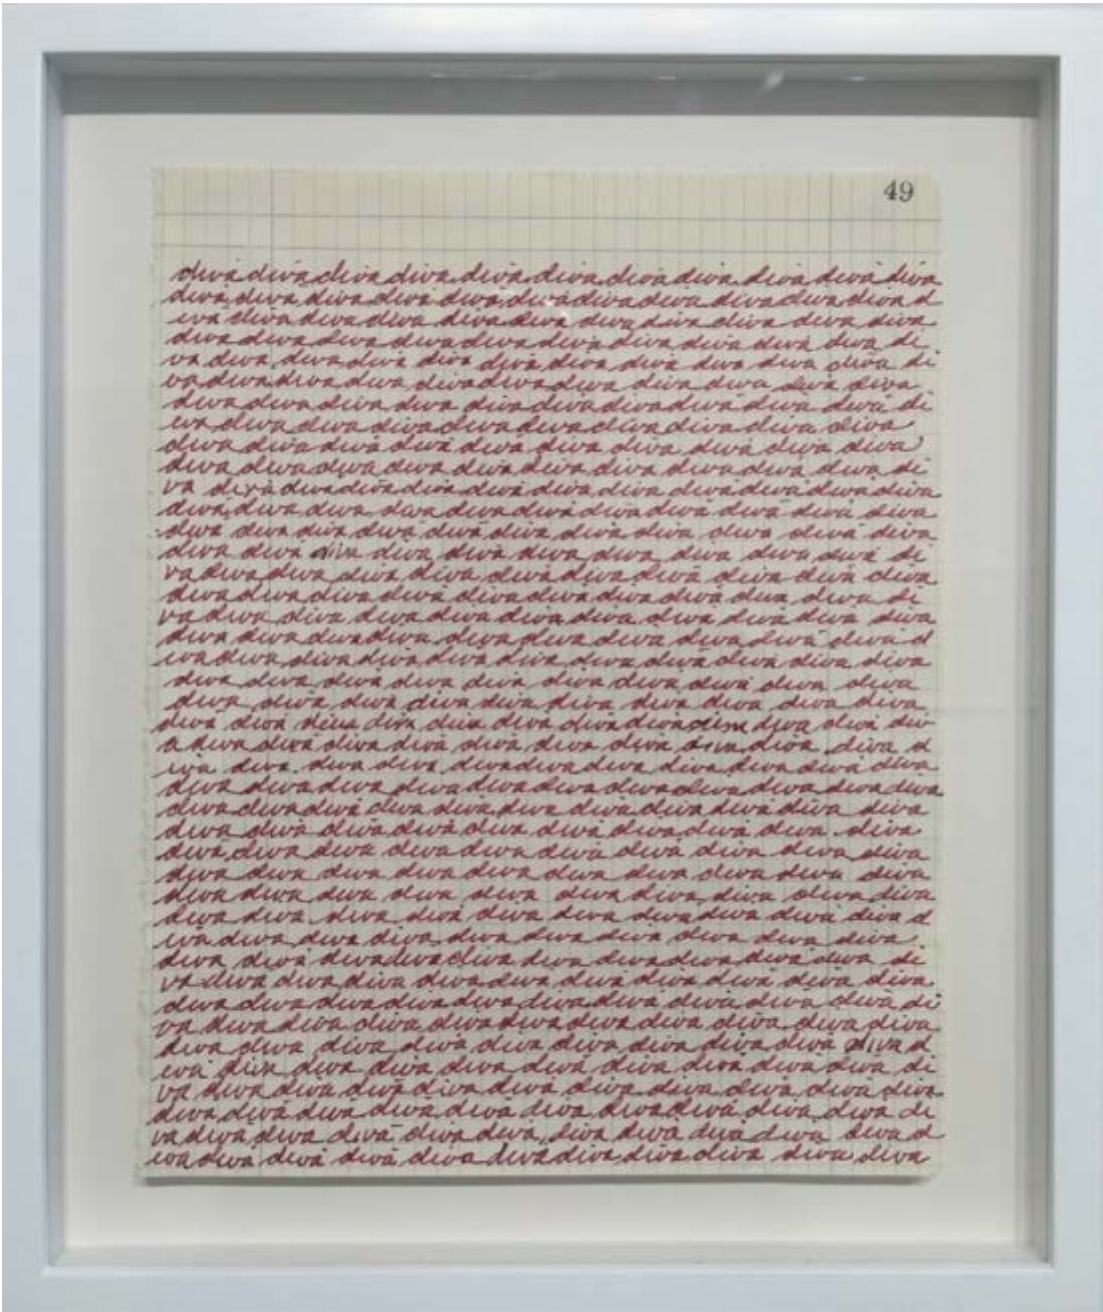 49
diva diva diva diva diva diva diva diva diva diva diva
diva diva diva diva diva diva diva diva diva diva d
iva diva diva diva diva diva diva diva diva diva diva
diva diva diva diva diva diva diva diva diva diva di
va diva diva diva diva diva diva diva diva diva diva di
va diva diva diva diva diva diva diva diva diva diva
diva diva diva diva diva diva diva diva diva diva di
iva diva diva diva diva diva diva diva diva diva
diva diva diva diva diva diva diva diva diva diva
diva diva diva diva diva diva diva diva diva diva di
va diva diva diva diva diva diva diva diva diva diva
diva diva diva diva diva diva diva diva diva diva diva
diva diva diva diva diva diva diva diva diva diva diva
diva diva diva diva diva diva diva diva diva diva di
va diva diva diva diva diva diva diva diva diva diva
diva diva diva diva diva diva diva diva diva diva di
va diva diva diva diva diva diva diva diva diva diva
diva diva diva diva diva diva diva diva diva diva d
iva diva diva diva diva diva diva diva diva diva diva
diva diva diva diva diva diva diva diva diva diva
diva diva diva diva diva diva diva diva diva diva
diva diva diva diva diva diva diva diva diva diva div
a diva diva diva diva diva diva diva diva diva diva d
iva diva diva diva diva diva diva diva diva diva diva
diva diva diva diva diva diva diva diva diva diva diva
diva diva diva diva diva diva diva diva diva diva diva
diva diva diva diva diva diva diva diva diva diva
diva diva diva diva diva diva diva diva diva diva diva
diva diva diva diva diva diva diva diva diva diva diva
diva diva diva diva diva diva diva diva diva diva diva
diva diva diva diva diva diva diva diva diva diva d
iva diva diva diva diva diva diva diva diva diva
diva diva diva diva diva diva diva diva diva diva di
va diva diva diva diva diva diva diva diva diva diva
diva diva diva diva diva diva diva diva diva diva di
va diva diva diva diva diva diva diva diva diva diva
diva diva diva diva diva diva diva diva diva diva d
iva diva diva diva diva diva diva diva diva diva di
va diva diva diva diva diva diva diva diva diva diva
diva diva diva diva diva diva diva diva diva diva di
va diva diva diva diva diva diva diva diva diva d
iva diva diva diva diva diva diva diva diva diva diva